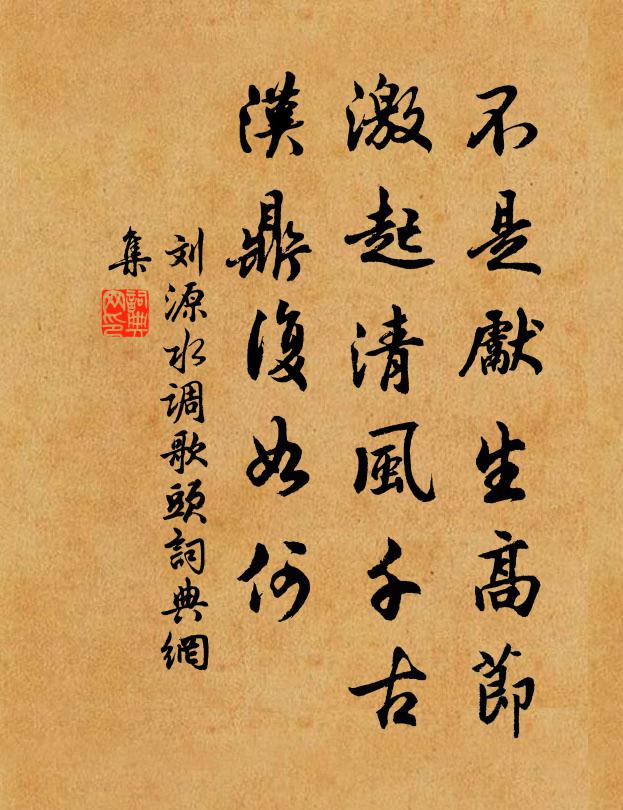 不是獻生高節
激起清風千古
漢鼎復如何
刘源水调歌頭詞典網
集
詞典
网印